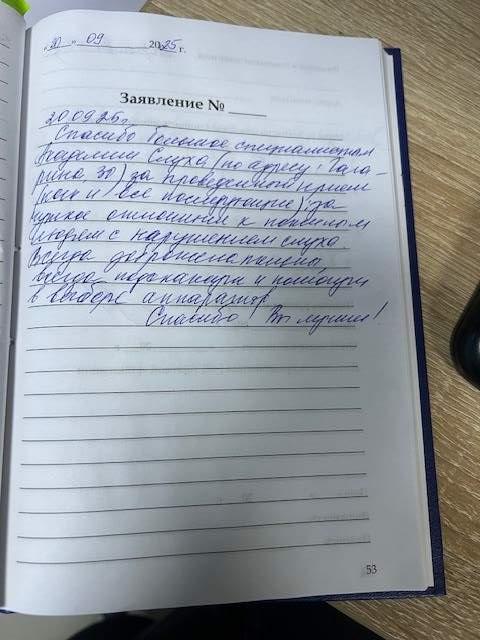 "20" 09 2025 г.
Заявление № ____
20.09.25г.
Спасибо большое специалистам
Академии Слуха (по адресу: Гага-
рина 30) за проведенный прием
(как и все последующие); за
чуткое отношение к пожилым
людям с нарушением слуха
Всегда доброжелательны,
всегда подскажут и помогут
в выборе аппаратов
Спасибо! Вы лучшие!
53